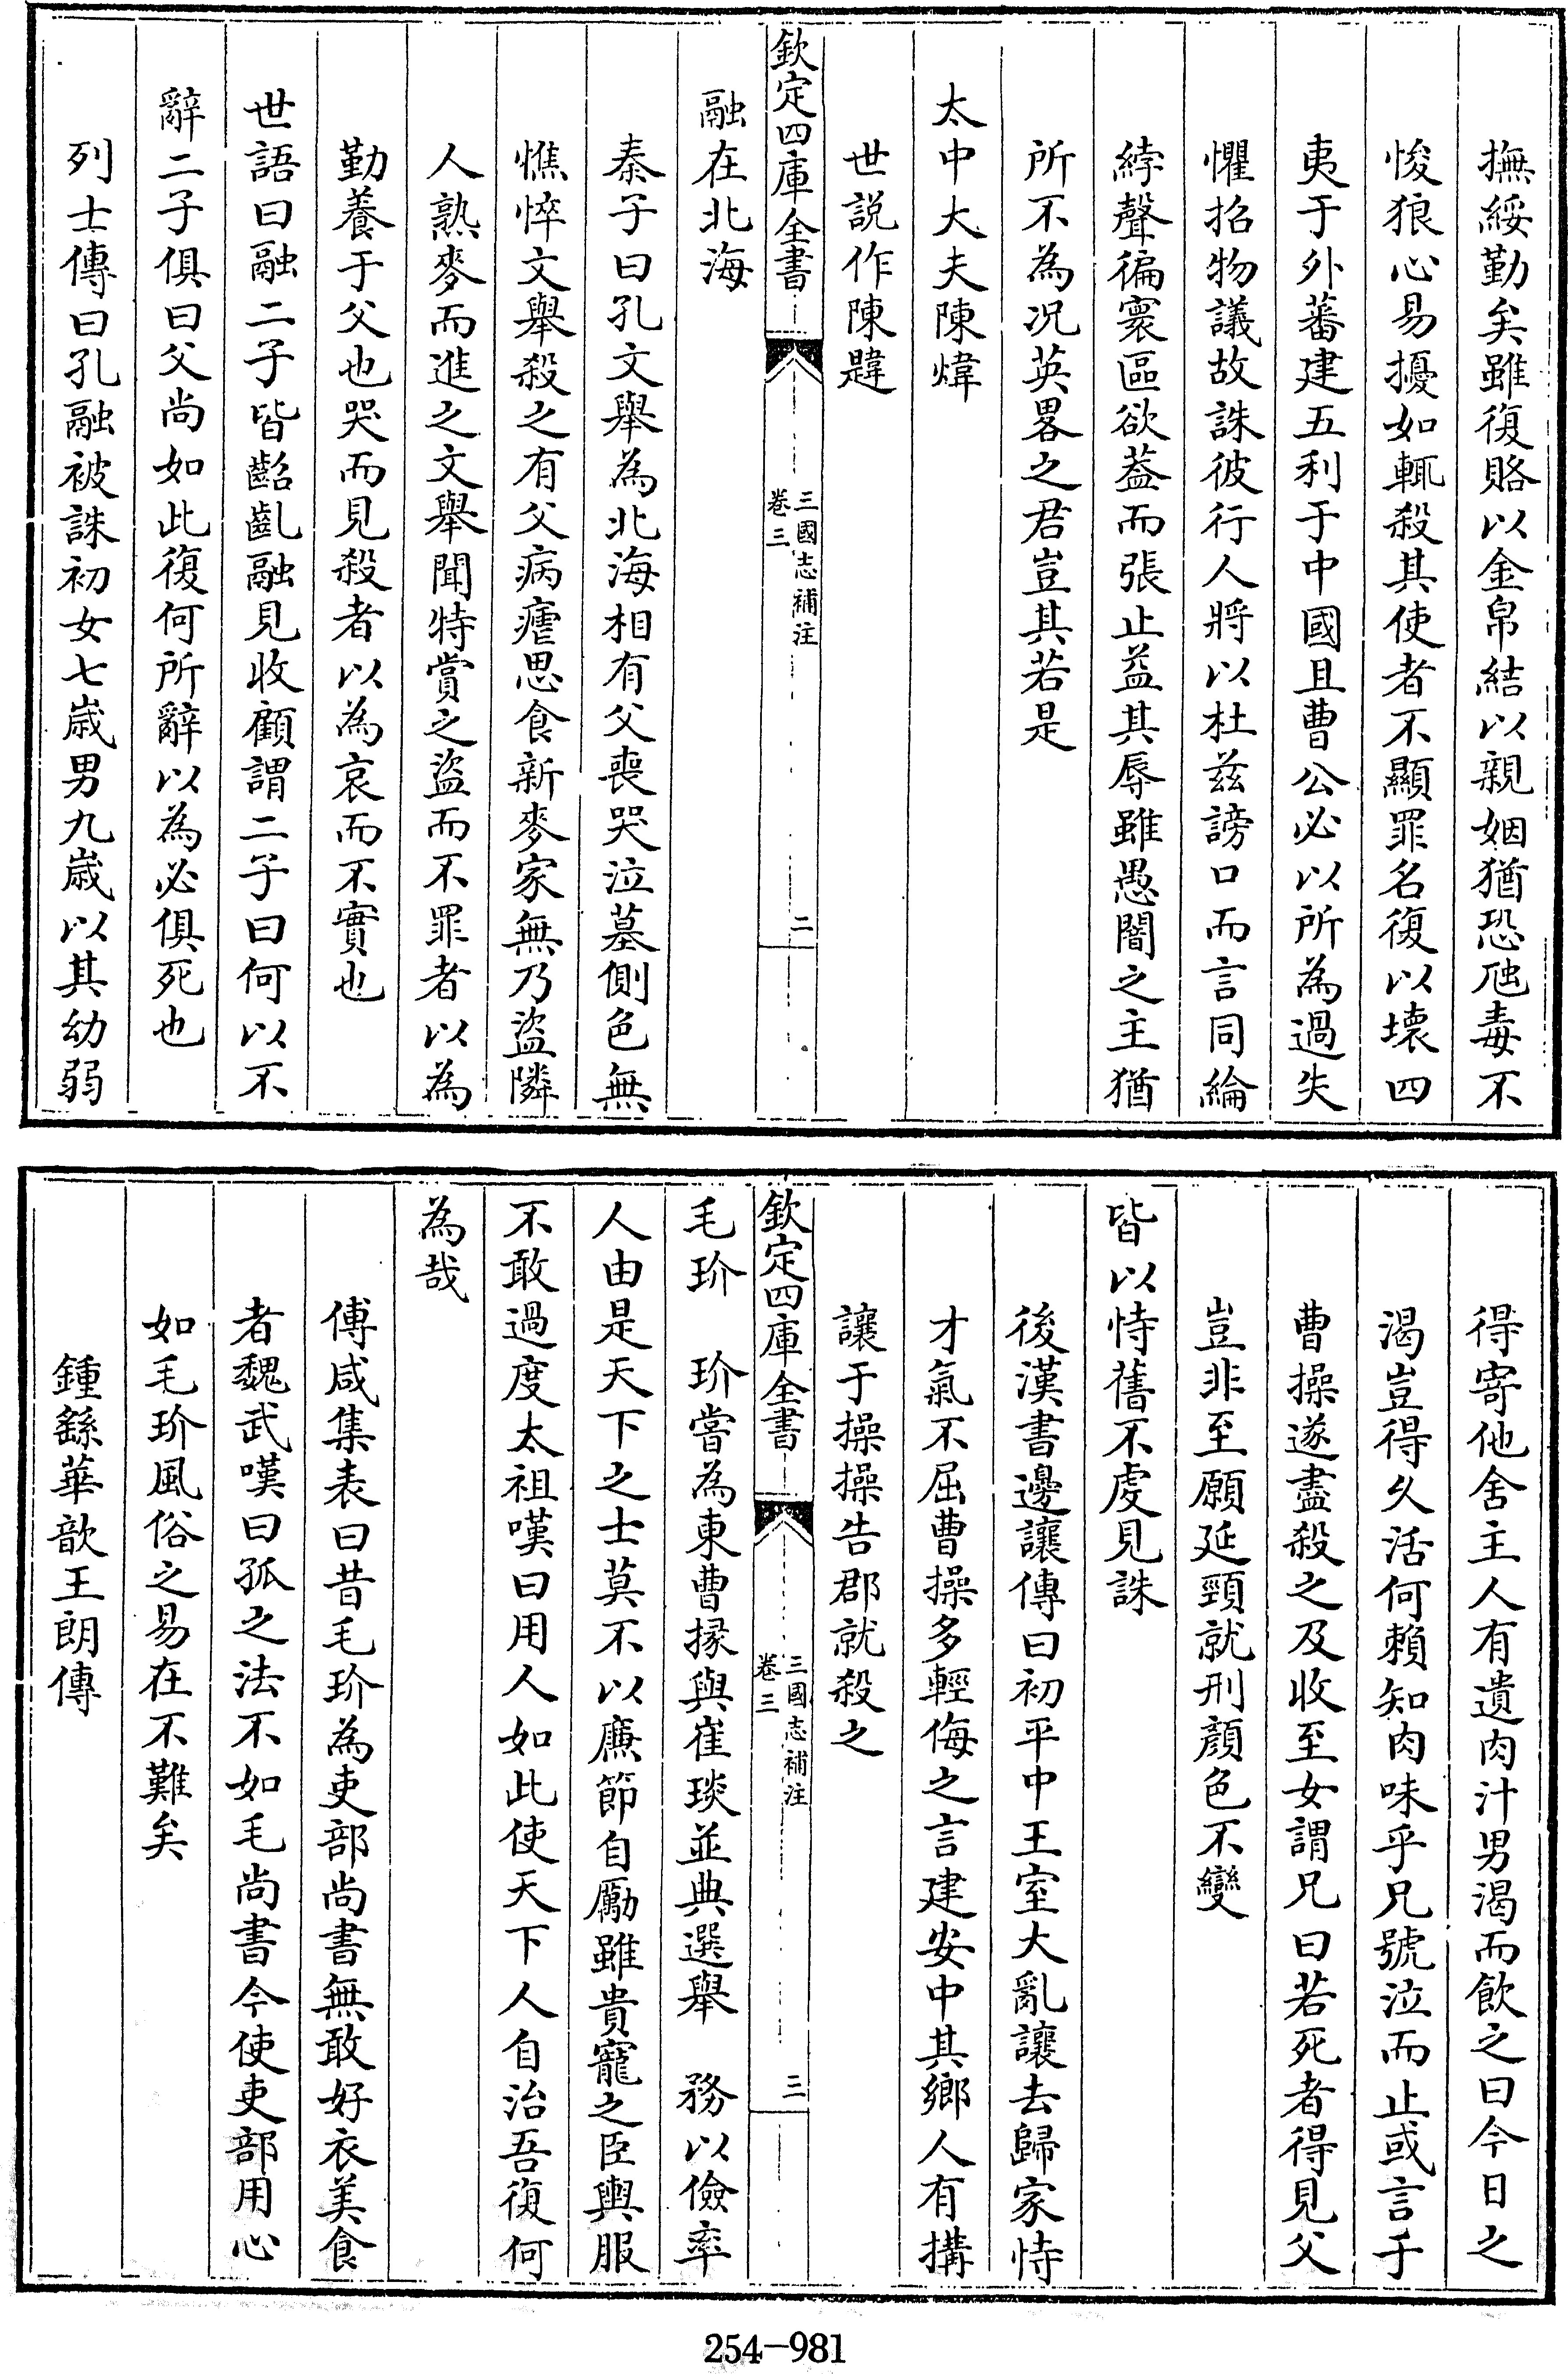 撫綏勤矣雖復賂以金帛結以親姻猶恐虺毒不
悛狼心易擾如輒殺其使者不顯罪名復以壊四
夷于外蕃建五利于中國且曹公必以所為過失
懼招物議故誅彼行人將以杜兹謗口而言同綸
綍聲徧寰區欲葢而張止益其辱雖愚闇之主猶
所不為况英畧之君豈其若是
太中大夫陳煒
世説作陳韙
欽定四庫全書
三國志補注
卷三
二
融在北海
秦子曰孔文舉為北海相有父喪哭泣墓側色無
憔悴文舉殺之有父病瘧思食新麥家無乃盜隣
人熟麥而進之文舉聞特賞之盜而不罪者以為
勤養于父也哭而見殺者以為哀而不實也
世語曰融二子皆齠齓融見收顧謂二子曰何以不
辭二子俱曰父尚如此復何所辭以為必俱死也
列士傳曰孔融被誅初女七歲男九歲以其幼弱
得寄他舍主人有遺肉汁男渴而飲之曰今日之
渴豈得久活何賴知肉味乎兄號泣而止或言于
曹操遂盡殺之及收至女謂兄曰若死者得見父
豈非至願延頸就刑顏色不變
皆以恃舊不虔見誅
後漢書邊讓傳曰初平中王室大亂讓去歸家恃
才氣不屈曹操多輕侮之言建安中其鄉人有搆
讓于操操告郡就殺之
欽定四庫全書
三國志補注
卷三
三
毛玠　玠嘗為東曹掾與崔琰並典選舉　務以儉率
人由是天下之士莫不以廉節自勵雖貴寵之臣輿服
不敢過度太祖嘆曰用人如此使天下人自治吾復何
為哉
傅咸集表曰昔毛玠為吏部尚書無敢好衣美食
者魏武嘆曰孤之法不如毛尚書今使吏部用心
如毛玠風俗之易在不難矣
鍾繇華歆王朗傳
254-981